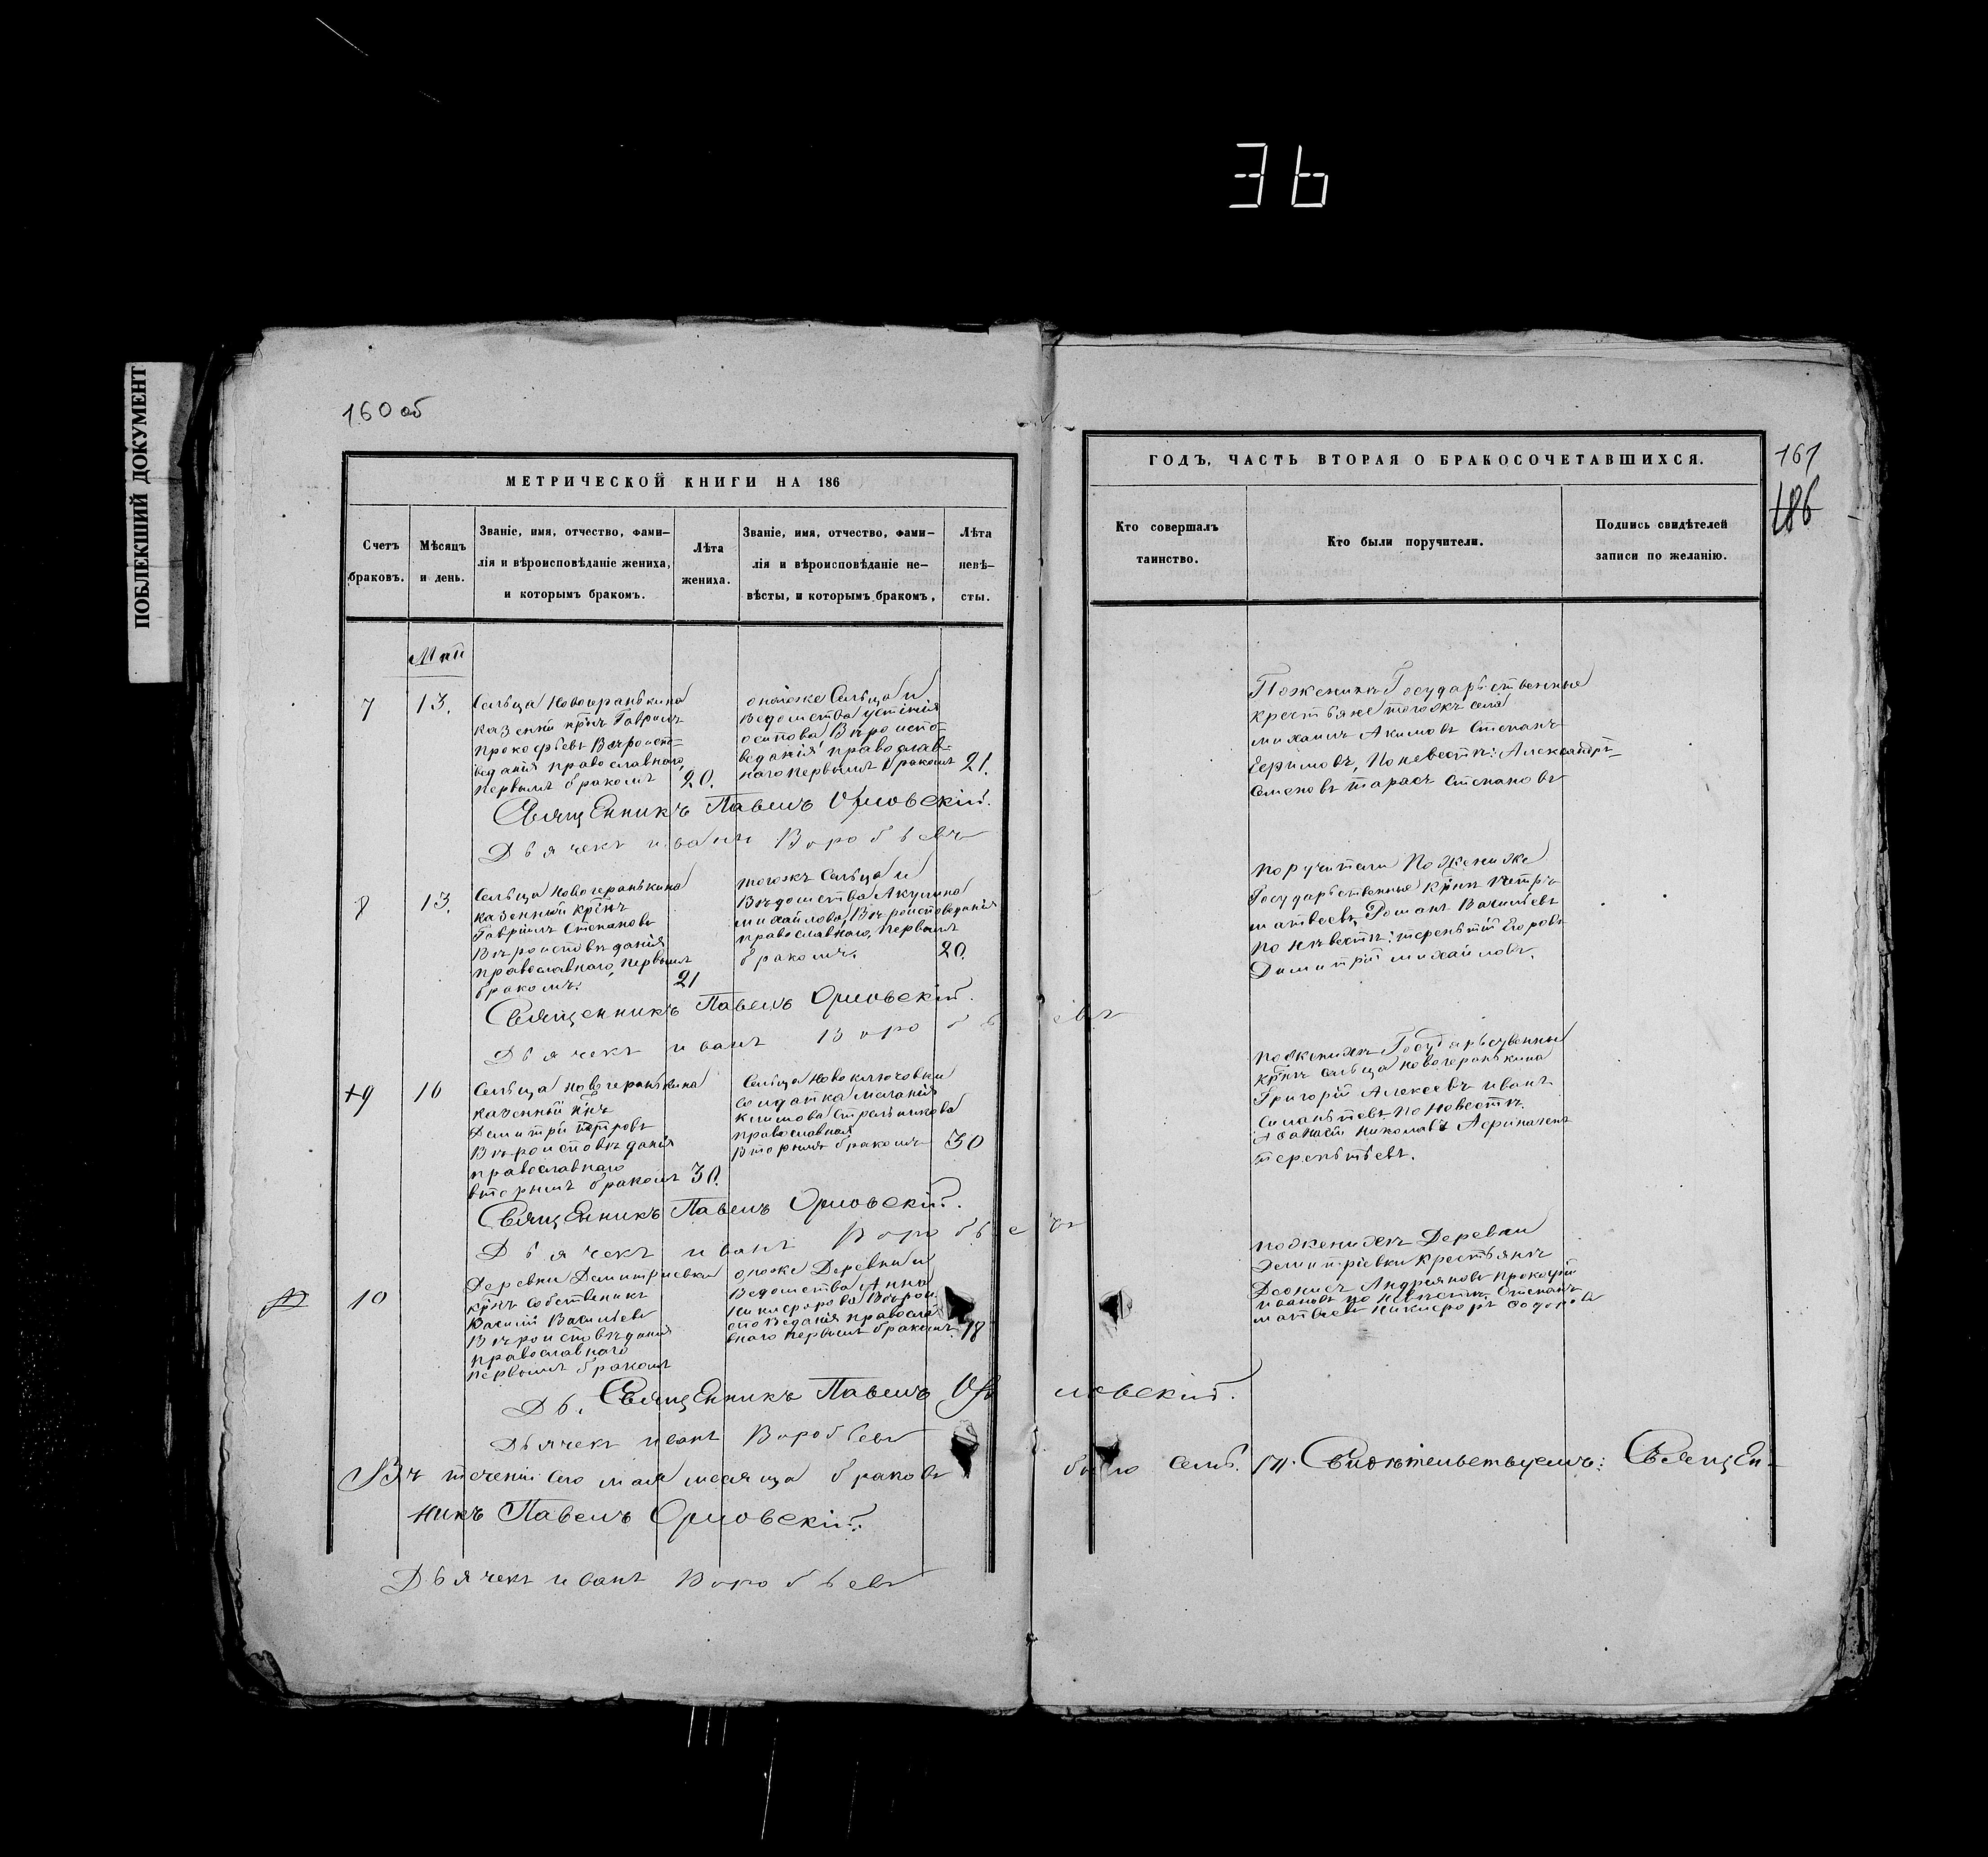 36
ПОБЛЕКШИЙ ДОКУМЕНТ
160 об
МЕТРИЧЕСКОЙ КНИГИ НА 186
Счетъ
браковъ.
Мѣсяцъ
и день.
Званіе, имя, отчество, фами-
лія и вѣроисповѣданіе жениха,
и которымъ бракомъ.
Лѣта
жениха.
Званіе, имя, отчество, фами-
лія и вѣроисповѣданіе не-
вѣсты, и которымъ бракомъ.
Лѣта
невѣ-
сты.
Май
7
13.
Сельца
казенный крнъ Гавріилъ
Прокофьевъ Вѣроиспо-
веданія православнаго,
первымъ бракомъ
20.
Сельца и
Ведомства Устинія
осипова Вѣроиспо-
веданія православ-
наго первымъ бракомъ
21.
Священникъ Павелъ Орловскій.
Дьячекъ иванъ Воробьевъ
8
13.
Сельца Новогеранькина
казенный крнъ
Гавріилъ Степановъ
Вѣроисповѣданія
православнаго, первымъ
бракомъ.
21
тогожъ Сельца и
Вѣдомства Акулина
михайлова, Вѣроисповеданія
православнаго, первымъ
бракомъ.
20.
Священникъ Павелъ Орловскій.
Дьячекъ иванъ Воробьевъ
+9
16
Сельца Новогеранькина
казенный крнъ
Димитрій петровъ
Вѣроисповѣданія
православнаго
вторымъ бракомъ
30.
Сельца Новоключовки
солдатка Меланія
Климова Стрельникова
православная
Вторымъ бракомъ
30
Священникъ Павелъ Орловскій.
Дьячекъ иванъ Воробьевъ
10
Деревни Димитриевки
крнъ собственикъ
Василій Васильевъ
Вѣроисповѣданія
православнаго
первымъ бракомъ
Деревни и
Ведомства Анна
Никифорова Вѣрои
споведанія правосла
внаго первымъ бракомъ
18
Дь. Священникъ Павелъ Орловскій.
Дьячекъ иванъ Воробьевъ
Въ теченіи сего мая месяца браковъ было семь. Свидѣтельствуемъ: Священ-
никъ Павелъ Орловскій.
Дьячекъ иванъ Воробьевъ
ГОДЪ, ЧАСТЬ ВТОРАЯ О БРАКОСОЧЕТАВШИХСЯ.
161
186
Кто совершалъ
таинство.
Кто были поручители.
Подпись свидѣтелей
записи по желанію.
Поженихѣ Государьственные
крестьяне тогожъ села
михаилъ Акимовъ Степанъ
Ефимовъ, Поневестѣ: Александръ
Семеновъ тарасъ Степановъ
поручители По женихе
Государьственные крнъ петръ
матвеевъ, Романъ Васильевъ
по невестѣ: терентій Егоровъ
Димитрій михайловъ.
поженихѣ Государьственный
крнъ сельца новогеранькина
Григорій Алексеевъ иванъ
По невестѣ
терентьевъ.
поженихѣ Деревни
Димитріевки крестьянъ
Андрияновъ прокофій
ивановъ по невестѣ Степанъ
матвеевъ Никифоръ Федоровъ